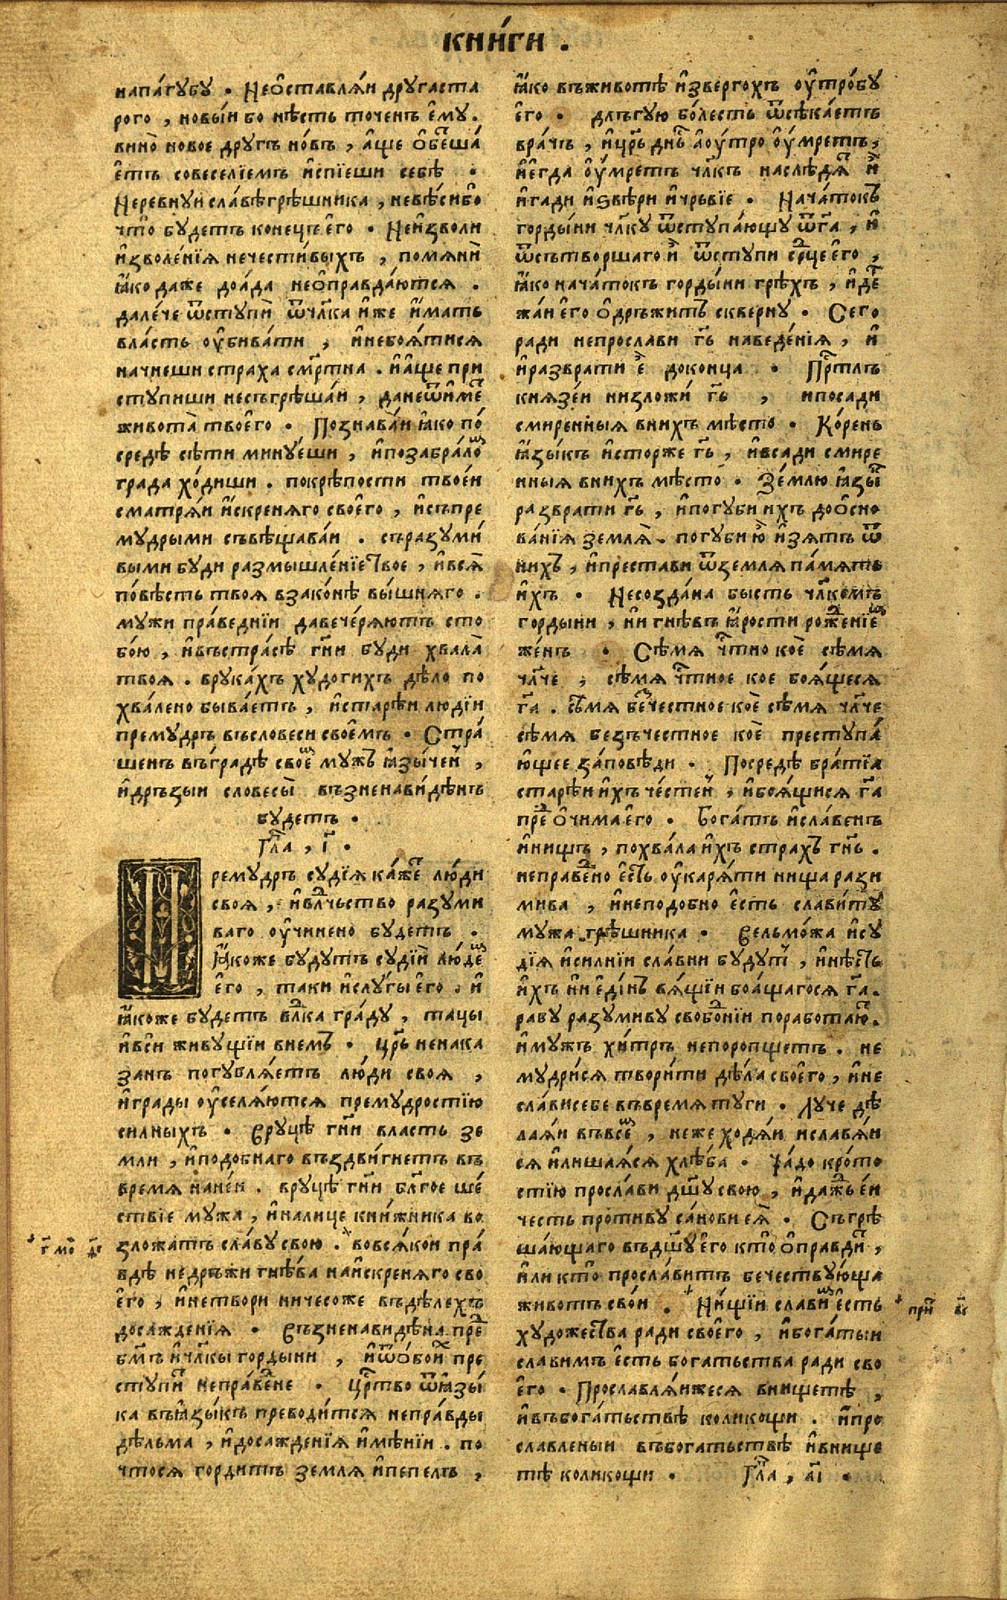 кни́ги .
напа́губу . Неѻ҆ставлѧ́и дру́га ста
рого , новы́и бо нѣсть точенъ є҆му́.
вино̀ новое другъ но́въ , а҆ще ѻ҆беща́
є҆тъ совеселїемъ и҆спїеши себѣ .
Неревнуи сла́вѣ грѣшника , невѣси бо
что̀ будетъ конецъ є҆го . Неи҆зволи
и҆зволе́нїѧ нечести́выхъ , помѧнѝ
ꙗ҆́ко даже доа҆́да неѻ҆правда́ютсѧ .
дале́че ѿступѝ ѿчл҃ка и҆же и҆мать
вла́сть ѹ҆бива́ти , и҆небоѧ́тисѧ
начнеши страха см҃ртна . и҆а҆ще при
ступиши несъгрѣша́и , данеѿи́ме
живота̀ твоего . Познава́и ꙗ҆ко по́
средѣ сѣти мину́еши , и҆позабра́ло
града хо́диши . покрѣпости твоеи
сматрѧ́и и҆́скренѧго своего , и҆съпре
мудрыми съвѣщава́и . съразуми́
выми буди размышле́нїе твое , и҆всѧ̀
по́вѣсть твоѧ взако́нѣ вы́шнѧго .
мужи пра́веднїи давечерѧ́ютъ сто
бо́ю , и҆въстра́сѣ гн҃и буди хвала̀
твоѧ . врука́хъ худогихъ дѣло по
хва́лено быва́етъ , и҆старѣи людїи
премудръ въсловеси свое́мъ . Стра́
шенъ въграде свое мужъ ꙗ҆зы́чен ,
и҆дръзыи словесы̀ възненави́дѣнъ
будетъ .
Гл҃а , і҃ .
Премудръ судїѧ ка́же лю́ди
своѧ , и҆вл҃чьство разуми
ваго ѹ҆чинено будетъ .
Ꙗ҆коже будутъ судїѝ лю́де
є҆го , таки и҆слугы є҆го . и҆
ꙗ҆коже будетъ вл҃ка гра́ду , тацы
и҆вси живущїи внемъ . цр҃ь ненака
занъ погублѧ́етъ лю́ди своѧ ,
и҆грады ѹ҆селѧ́ютсѧ премудростїю
силныхъ . Вруцѣ гн҃и власть зе
мли , и҆подобнаго въздви́гнетъ въ
времѧ нане́и . вруцѣ гн҃и бл҃гое ше́
ствїе мужа , и҆налице кни́жника во
зложа́тъ сла́ву свою . вовсѧ́кои пра́
вдѣ недръжи гнѣва наи҆скренѧго сво
є҆го , и҆нетвори ничесоже въдѣлехъ
досажденїѧ . Възненави́дѣна пре
бм҃ъ и҆чл҃кы гордыни , и҆ѿѻ҆бои пре
ступи́ непра́вене . цр҃тво ѿꙗ҆зы́
ка въꙗ҆зы́къ преводи́тсѧ непра́вды
дѣльма , и҆досажденїѧ и҆мѣнїи . по
чтосѧ гордитъ землѧ и҆пепелъ ,
ꙗ҆ко въживотѣ и҆зверго́хъ ѹ҆тро́бу
є҆го . длъгую бо́лесть ѿсѣка́етъ
вра́чь , и҆цр҃ь дн҃ь а҆оу́тро ѹ҆́мретъ ,
и҆є҆гда ѹ҆́мретъ чл҃къ наслѣдѧ и҆
и҆гади и҆ѕвѣри и҆чрьвїе . Нача́токъ
горды́ни чл҃ку ѿступа́ющу ѿг҃а , и҆
ѿсътворшаго и҆ ѿступи ср҃це є҆го ,
ꙗ҆ко нача́токъ горды́ни грѣхъ , и҆де
жа́и є҆го ѻ҆дръжитъ скверну . Сего
ради непрослави гь҃ наведе́нїѧ , и҆
и҆разврати є҆ доконца . Пр҃тлъ
кнѧзе́и низложи́ гь҃ , ипосади
смиренныѧ вни́хъ мѣсто . Ко́рень
ꙗ҆зы́къ и҆сторже гь҃ , и҆всади смире
нныѧ внихъ мѣсто . Зе́млю ꙗ҆зы
разврати гь҃ , и҆погуби и҆хъ доѻ҆сно
ва́нїѧ землѧ̀ . погуби ю҆ и҆зѧтъ ѿ
нихъ , и҆престави ѿземлѧ па́мѧть
и҆хъ . Несозда́на бысть чл҃комъ
гордыни , ни гнѣвъ ꙗ҆́рости роже́нїе
же́нъ . Сѣ́мѧ чт҃но коѐ сѣмѧ
чл҃че , сѣ́мѧ чт҃ное кое боѧ́щесѧ
г҃а . сѣмѧ бечестное коѐ сѣмѧ чл҃че
сѣмѧ безъчестное коѐ преступа́
ю҆щее за́повѣди . Посредѣ бра́тїѧ
старѣи и҆хъ че́стен , и҆боѧ́щисѧ г҃а
пре ѻ҆чима є҆го . Богатъ и҆славенъ
и҆нищъ , похвала и҆хъ страхъ гн҃ь .
неправено є҆сть ѹ҆карѧ́ти нища рази
мива , и҆неподобно є҆сть слави́ту
мужа грѣшника . Вельмо́жа и҆су
дїѧ и҆силнїи сла́вни будут , и҆нѣсть
и҆хъ ни є҆ди́нъ вѧ́щїи боѧ́щагосѧ г҃а.
рабу разумиву свобонїи поработаю.
и҆мужъ хи́тръ непоропщетъ . не
мудри́сѧ твори́ти дѣ́ла своего , и҆не
слави себе въвремѧ туги . Луче дѣ
лаѧи въвсе , неже ходѧ́и иславѧ́и
сѧ и҆лиша́ѧсѧ хлѣба . Ча́до кро́то
стїю прослави дш҃у свою , и҆даждь е́и
честь противу са́нови еѧ̀ . Съгрѣ
ша́ющаго въдш҃у є҆го кто̀ ѻ҆правди ,
и҆ли кто̀ прослави́тъ бечествую́ща
животъ сво́и . Ни́щїи слави є҆сть
художества ради своего , и҆бога́тыи
славимъ є҆сть богатьства ради сво
є҆го . Прославлѧ́ижесѧ внищетѣ ,
и҆въбога́тьствѣ коликощи . и҆про
славленыи въбогатьствѣ и҆внище
тѣ коликощи . Гл҃а , а҃і .